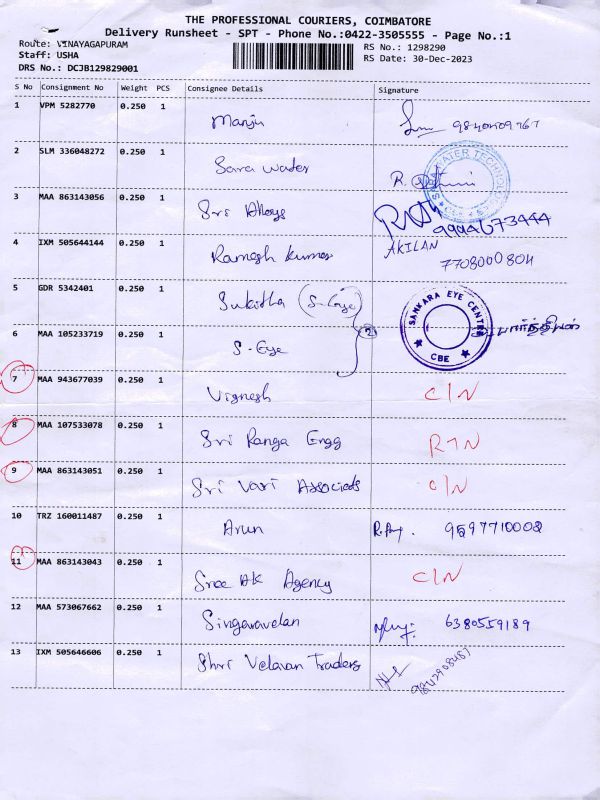 THE PROFESSIONAL COURIERS, COIMBATORE
Delivery Runsheet - SPT - Phone No.:0422-3505555 - Page No.:1
Route: VINAYAGAPURAM
RS No.: 1298290
Staff: USHA
RS Date: 30-Dec-2023
DRS No.: DCJB129829001
S No Consignment No Weight PCS Consignee Details Signature
1 VPM 5282770 0.250 1 Manju
2 SLM 336048272 0.250 1 Sara water R.
SARA WATER TECHNOLOGIES
3 MAA 863143056 0.250 1 Sri Alloys 9994673444
4 IXM 505644144 0.250 1 Ramesh Kumar AKILAN 7708000804
5 GDR 5342401 0.250 1 Sukitha (S-Eye)
SANKARA EYE CENTRE
CBE
6 MAA 105233719 0.250 1 S-Eye 2
7 MAA 943677039 0.250 1 Vignesh C/N
8 MAA 107533078 0.250 1 Sri Ranga Engg RTN
9 MAA 863143051 0.250 1 Sri Vari Associeds C/N
10 TRZ 160011487 0.250 1 Arun 9597710002
11 MAA 863143043 0.250 1 Sree AK Agency C/N
12 MAA 573067662 0.250 1 Singaravelan 6380559189
13 IXM 505646606 0.250 1 Shri Velavan Traders 9842908487